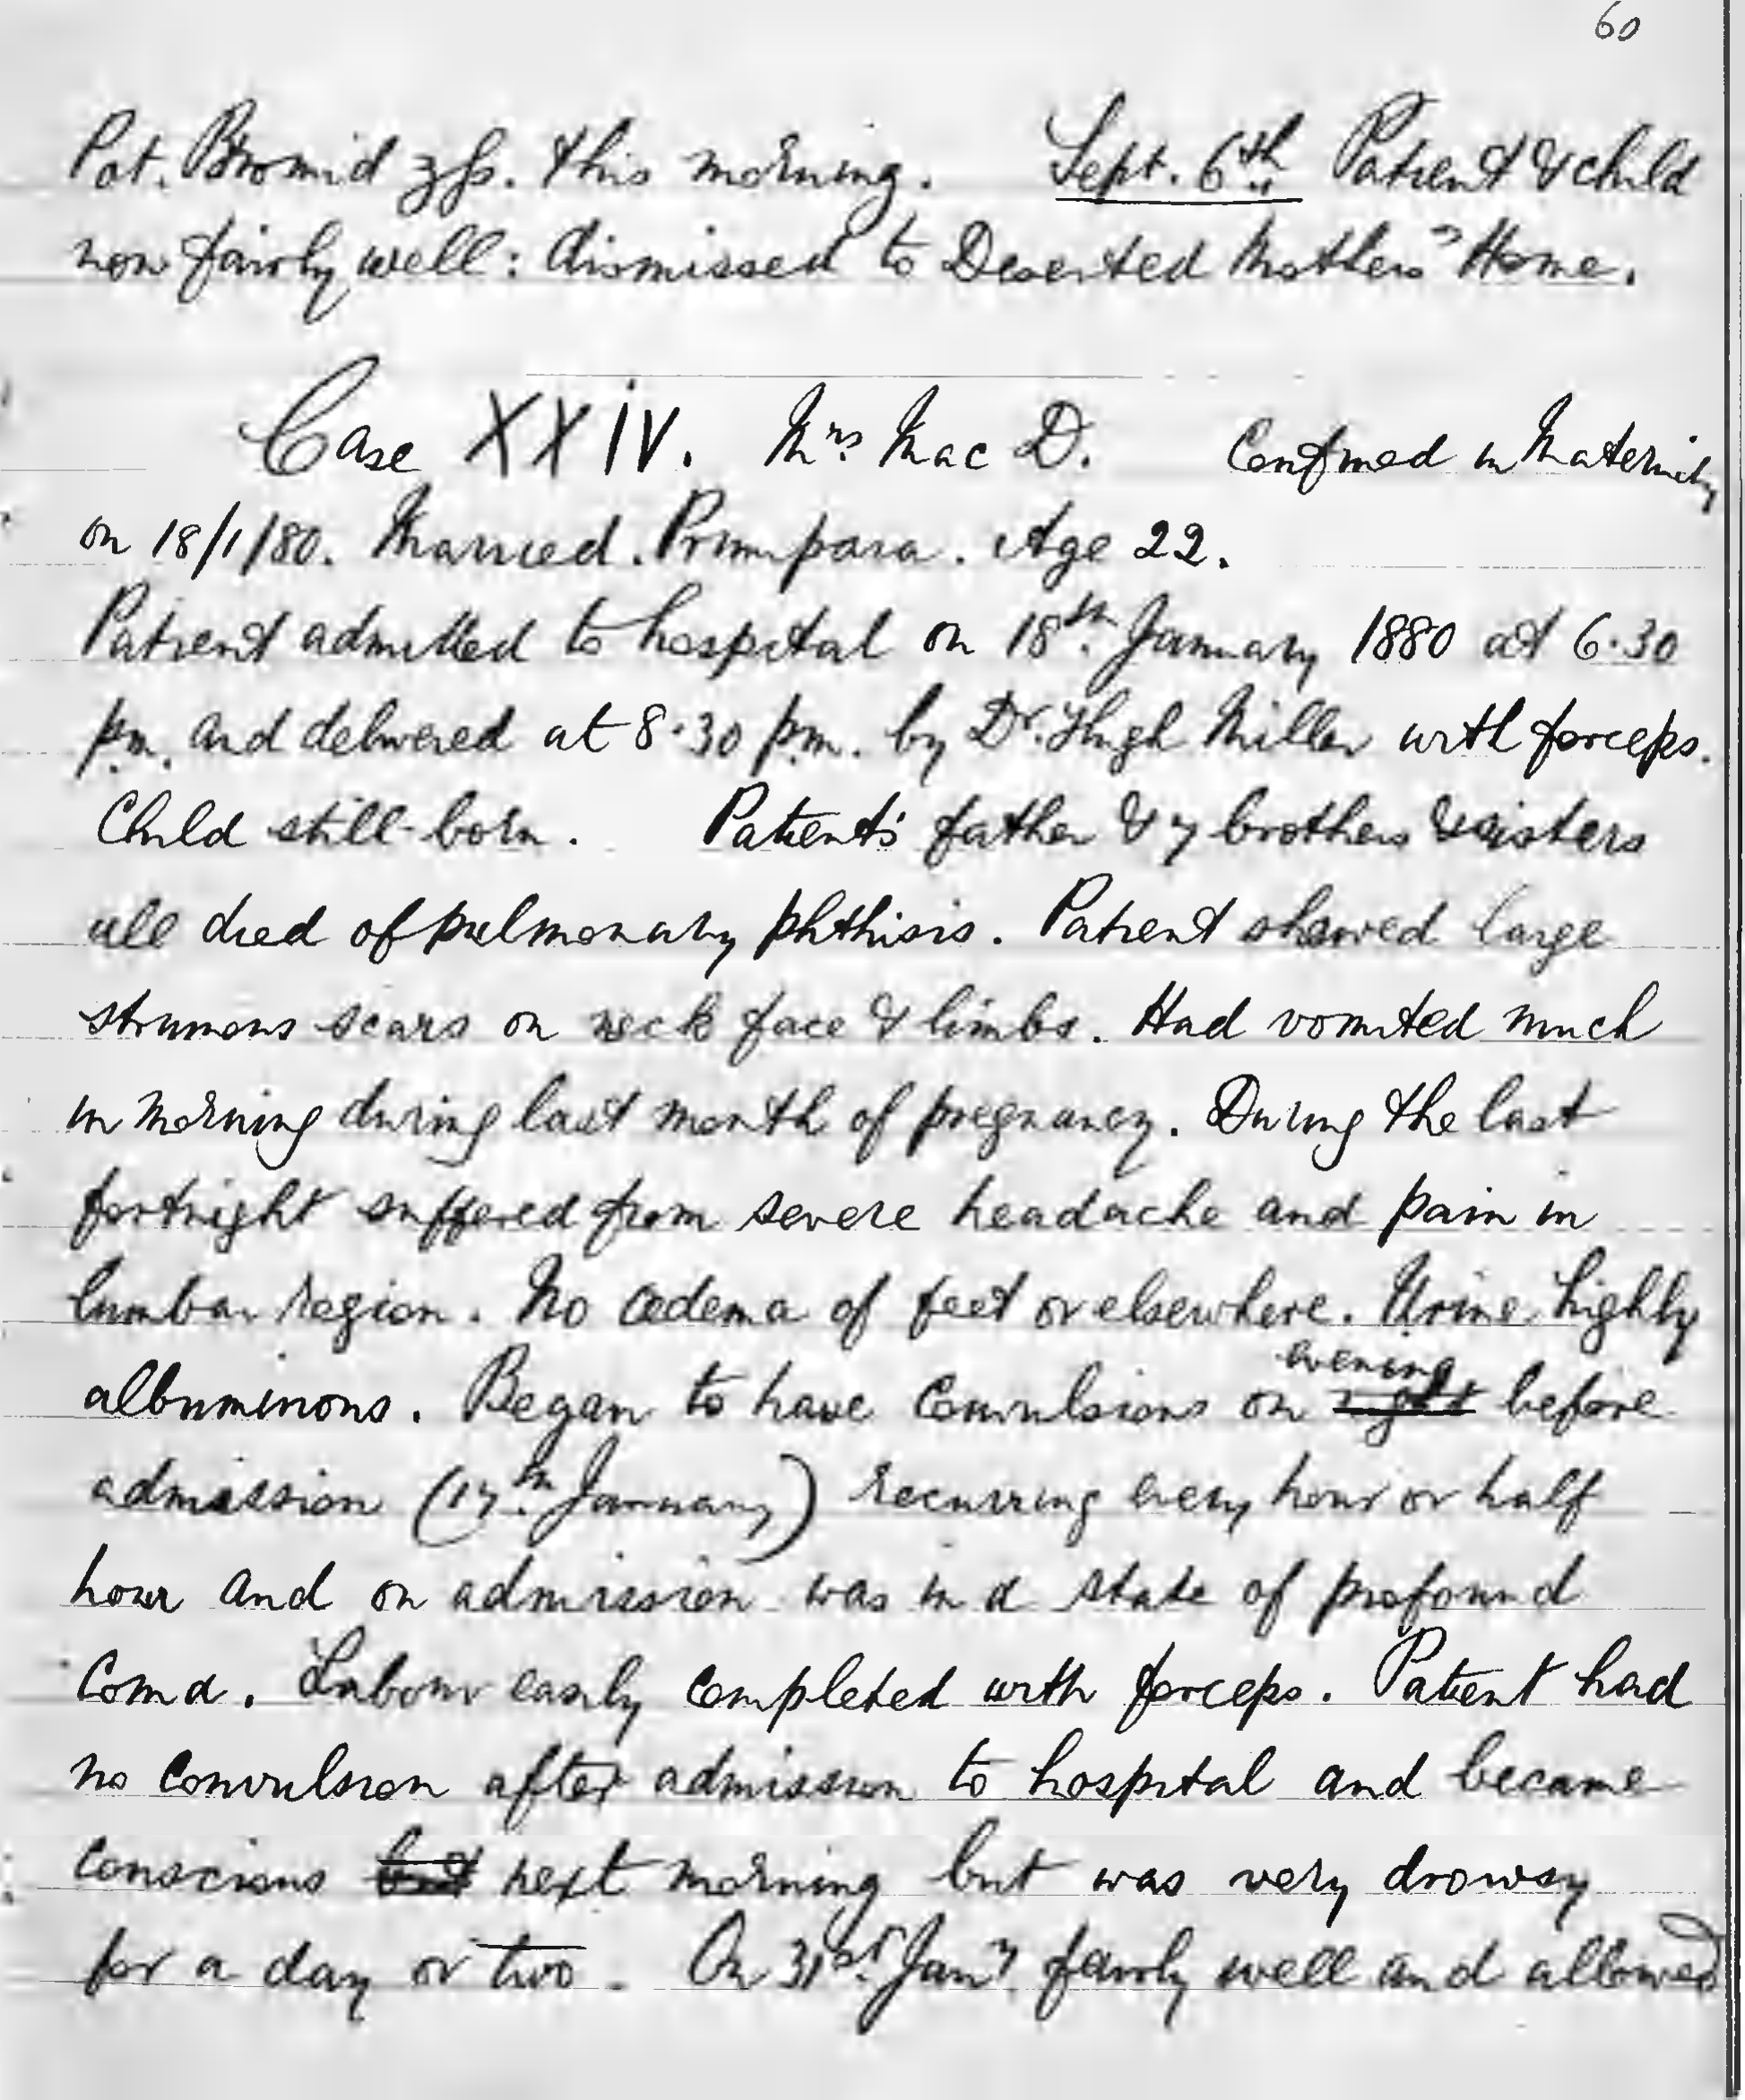 60
Pot. Bromid ʒfs. this morning. Sept. 6th Patient & child
now fairly well: dismissed to Deserted Mothers' Home.
Case XXIV. Mrs Mac D. Confined in Maternity
on 18/1/80. Married. Primipara. Age 22.
Patient admitted to hospital on 18th. January 1880 at 6.30
pm. and delivered at 8.30 pm. by Dr. Hugh Miller with forceps.
Child still-born. Patient's father & 7 brothers & sisters
all died of pulmonary phthisis. Patient showed large
strumous scars on neck face & limbs. Had vomited much
in morning during last month of pregnancy. During the last
fortnight suffered from severe headache and pain in
lumbar region. No oedema of feet or elsewhere. Urine highly
albuminous. Began to have convulsions on evening ~~night~~ before
admission (17th. January) recurring every hour or half
hour and on admission was in a state of profound
coma. Labour easily completed with forceps. Patient had
no convulsion after admission to hospital and became
conscious ~~but~~ next morning but was very drowsy
for a day or two. On 31st. Jany. fairly well and allowed